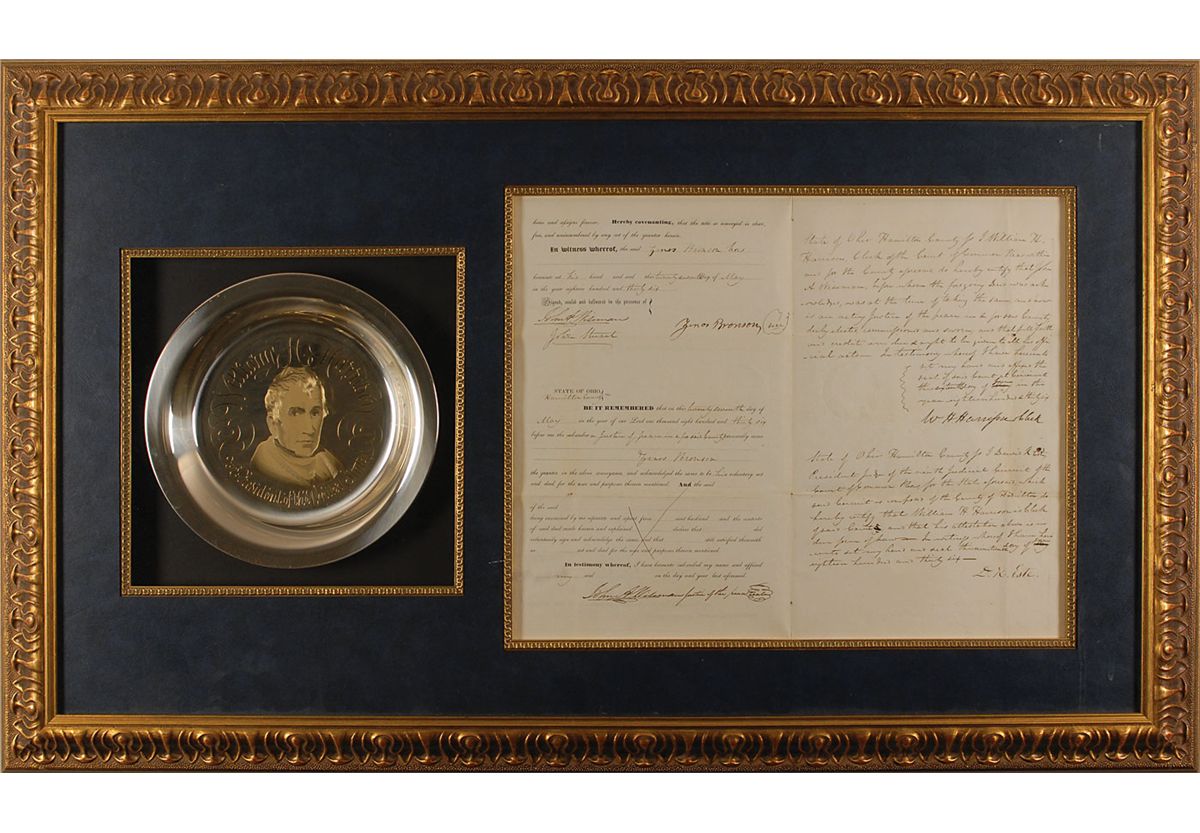 William H. Harrison
President of the United States
heirs and assigns forever. Hereby covenanting, that the title so conveyed is clear,
free, and unincumbered by any act of the grantor herein.
In witness whereof, the said Zenos Bronson has
hereunto set his hand and seal this twenty seventh day of May
in the year eighteen hundred and thirty six
Signed, sealed and delivered in the presence of
John A. Wiseman
John Stuart
Zenos Bronson seal
STATE OF OHIO,
Hamilton County
BE IT REMEMBERED that on this twenty seventh day of
May in the year of our Lord one thousand eight hundred and thirty six
before me the subscriber a Justice of peace in & for said County personally came
Zenos Bronson
the grantor in the above conveyance, and acknowledged the same to be his voluntary act
and deed for the uses and purposes therein mentioned. And the said
of the said
being examined by me separate and apart from said husband and the contents
of said deed made known and explained declare that did
voluntarily sign and acknowledge the same and that still satisfied therewith
as act and deed for the uses and purposes therein mentioned.
In testimony whereof, I have hereunto subscribed my name and affixed
my seal on the day and year last aforesaid.
John A Wiseman Justice of the Peace
State of Ohio Hamilton County Ss I William H.
Harrison Clerk of the Court of Common Pleas within
and for the County aforesaid do hereby certify that John
A Wiseman before whom the foregoing Deed was ack
nowledged, was at the time of taking the same and now
is an acting Justice of the peace in & for said County
duly elected, commissioned and sworn and that full faith
and credit are due & ought to be given to all his offi
cial acts. In testimony whereof I have hereunto
set my hand and affixed the
seal of said County at Cincinnati
the day of in the
year eighteen hundred & thirty six
W H Harrison Clerk
State of Ohio Hamilton County Ss I David K Este
President Judge of the ninth Judicial Circuit of the
Court of Common Pleas for the State aforesaid, which
said Circuit is composed of the County of Hamilton, do
hereby certify that William H Harrison is Clerk
of said Court and that his attestation above is in
due form of law. In witness whereof I have here
unto set my hand and seal the day of
eighteen hundred and thirty six
D. K. Este.